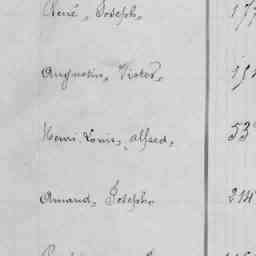 René, Joseph,
Augustin, Victor,
Henri, Louis, alfred, 53
Amand, Joseph, 214